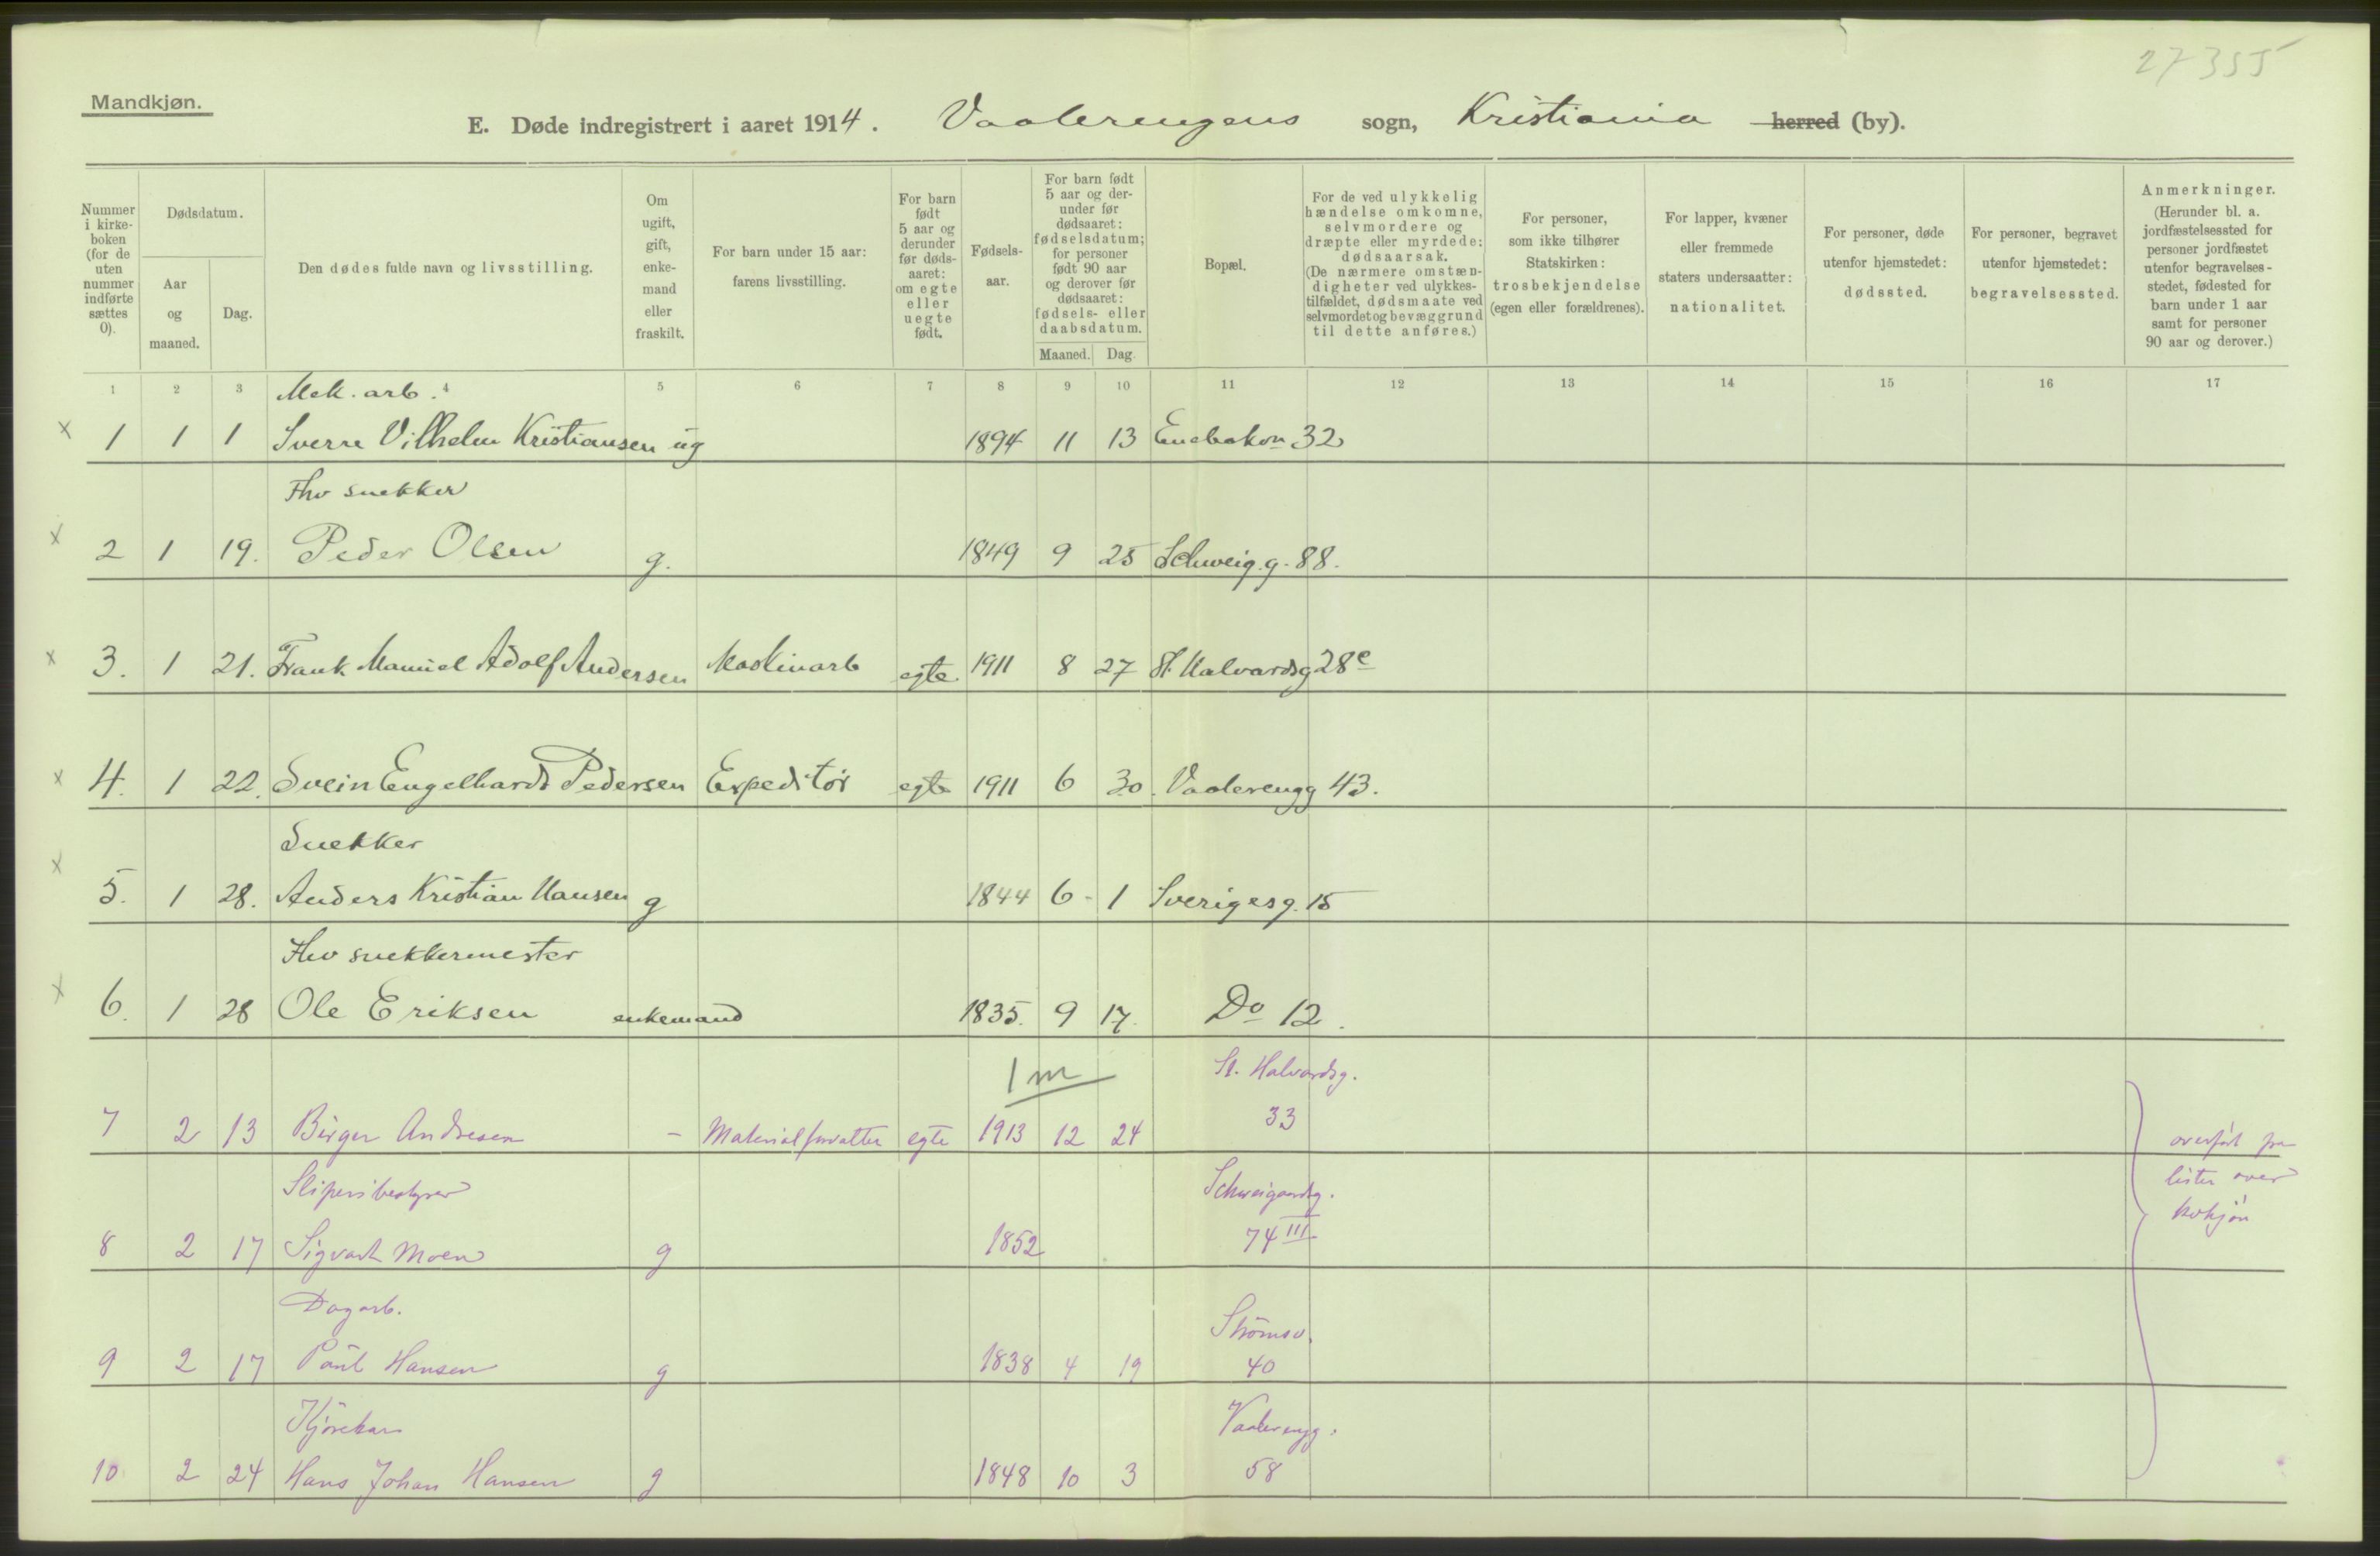 27355
Mandkjøn.
E. Døde indregistrert i aaret 1914. Vaalerengens sogn, Kristiania herred (by).
Nummer i kirke- boken (for de uten nummer indførte sættes 0).
Dødsdatum.
Aar og maaned.
Dag.
Den dødes fulde navn og livsstilling.
Om ugift, gift, enke- mand eller fraskilt.
For barn under 15 aar: farens livsstilling.
For barn født 5 aar og derunder før døds- aaret: om egte eller uegte født.
Fødsels- aar.
For barn født 5 aar og der- under før dødsaaret: fødselsdatum; for personer født 90 aar og derover før dødsaaret: fødsels- eller daabsdatum.
Maaned. Dag.
Bopæl.
For de ved ulykkelig hændelse omkomne, selvmordere og dræpte eller myrdede: dødsaarsak. (De nærmere omstæn- digheter ved ulykkes- tilfældet, dødsmaate ved selvmordet og bevæggrund til dette anføres.)
For personer, som ikke tilhører Statskirken: trosbekjendelse (egen eller forældrenes).
For lapper, kvæner eller fremmede staters undersaatter: nationalitet.
For personer, døde utenfor hjemstedet: dødssted.
For personer, begravet utenfor hjemstedet: begravelsessted.
Anmerkninger. (Herunder bl. a. jordfæstelsessted for personer jordfæstet utenfor begravelses- stedet, fødested for barn under 1 aar samt for personer 90 aar og derover.)
1 2 3 4 5 6 7 8 9 10 11 12 13 14 15 16 17
Mek. arb.
x 1 1 1 Sverre Vilhelm Kristiansen ug 1894 11 13 Enebakvn 32
Fhv snekker
x 2 1 19. Peder Olsen g. 1849 9 25 Schweig.g. 88.
x 3. 1 21. Frank Manuel Adolf Andersen Maskinarb egte 1911 8 27 St. Halvardsg 28e
x 4. 1 22. Svein Engelhardt Pedersen Expeditør egte 1911 6 30. Vaalerengg 43.
Snekker
x 5. 1 28. Anders Kristian Hansen g 1844 6 - 1 Sverigesg. 15
Fhv snekkermester
x 6. 1 28 Ole Eriksen enkemand 1835. 9 17. Do 12.
1 m St. Halvardsg.
7 2 13 Birger Andresen - Materialforvalter egte 1913 12 24 33
overført fra
Sliperibestyrer Schweigaardsg.
lister over
kvkjøn
8 2 17 Sigvart Moen g 1852 74 III
Dagarb. Strømsv.
9 2 17 Paul Hansen g 1838 4 19 40
Kjørekar Vaalerengg.
10 2 24 Hans Johan Hansen g 1848 10 3 58